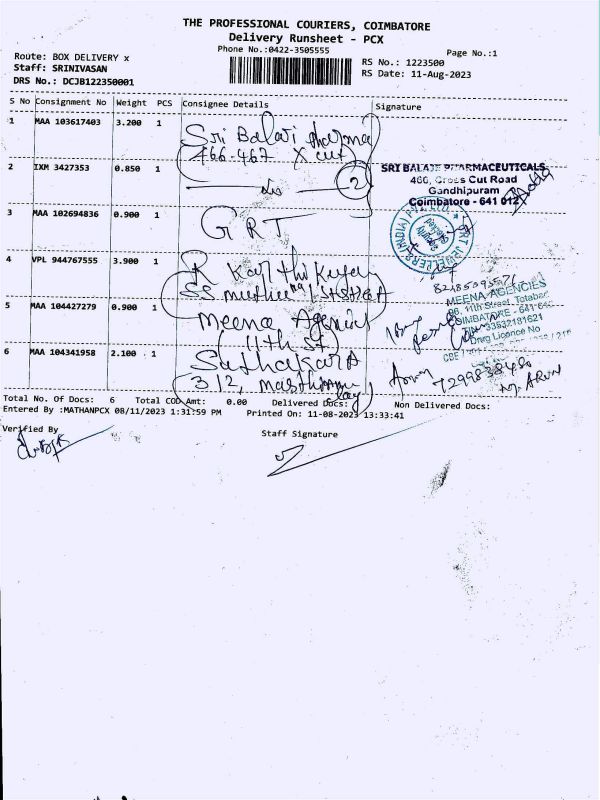 THE PROFESSIONAL COURIERS, COIMBATORE
Delivery Runsheet - PCX
Phone No.:0422-3505555
Page No.:1
Route: BOX DELIVERY x
Staff: SRINIVASAN
DRS No.: DCJB122350001
RS No.: 1223500
RS Date: 11-Aug-2023
S No Consignment No Weight PCS Consignee Details Signature
1 MAA 103617403 3.200 1 Sri Balaji pharma
466-467 X cut
2 IXM 3427353 0.850 1 do 2
SRI BALAJI PHARMACEUTICALS
466, Cross Cut Road
Gandhipuram
Coimbatore - 641 012
3 MAA 102694836 0.900 1 GRT
GRT JEWELLERS (INDIA)
4 VPL 944767555 3.900 1 R Karthikeyan
SS
MEENA AGENCIES
11th Street, Tatabad
COIMBATORE - 641
Drug Licence No
5 MAA 104427279 0.900 1 Meena Agencies
(11th st)
6 MAA 104341958 2.100 1
312,
7299838480
M. ARUN
Total No. Of Docs: 6 Total COD Amt: 0.00 Delivered Docs: Non Delivered Docs:
Entered By :MATHANPCX 08/11/2023 1:31:59 PM Printed On: 11-08-2023 13:33:41
Verified By
Staff Signature